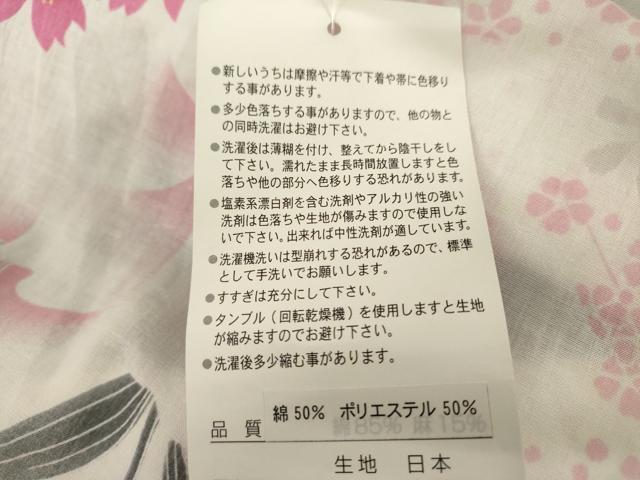 ●新しいうちは摩擦や汗等で下着や帯に色移り
する事があります。
●多少色落ちする事がありますので、他の物と
の同時洗濯はお避け下さい。
●洗濯後は薄糊を付け、整えてから陰干しをし
て下さい。濡れたまま長時間放置しますと色
落ちや他の部分へ色移りする恐れがあります。
●塩素系漂白剤を含む洗剤やアルカリ性の強い
洗剤は色落ちや生地が傷みますので使用しな
いで下さい。出来れば中性洗剤が適しています。
●洗濯機洗いは型崩れする恐れがあるので、標準
として手洗いでお願いします。
●すすぎは充分にして下さい。
●タンブル(回転乾燥機)を使用しますと生地
が縮みますのでお避け下さい。
●洗濯後多少縮む事があります。
品質 綿50% ポリエステル50%
綿85% 麻15%
生地 日本